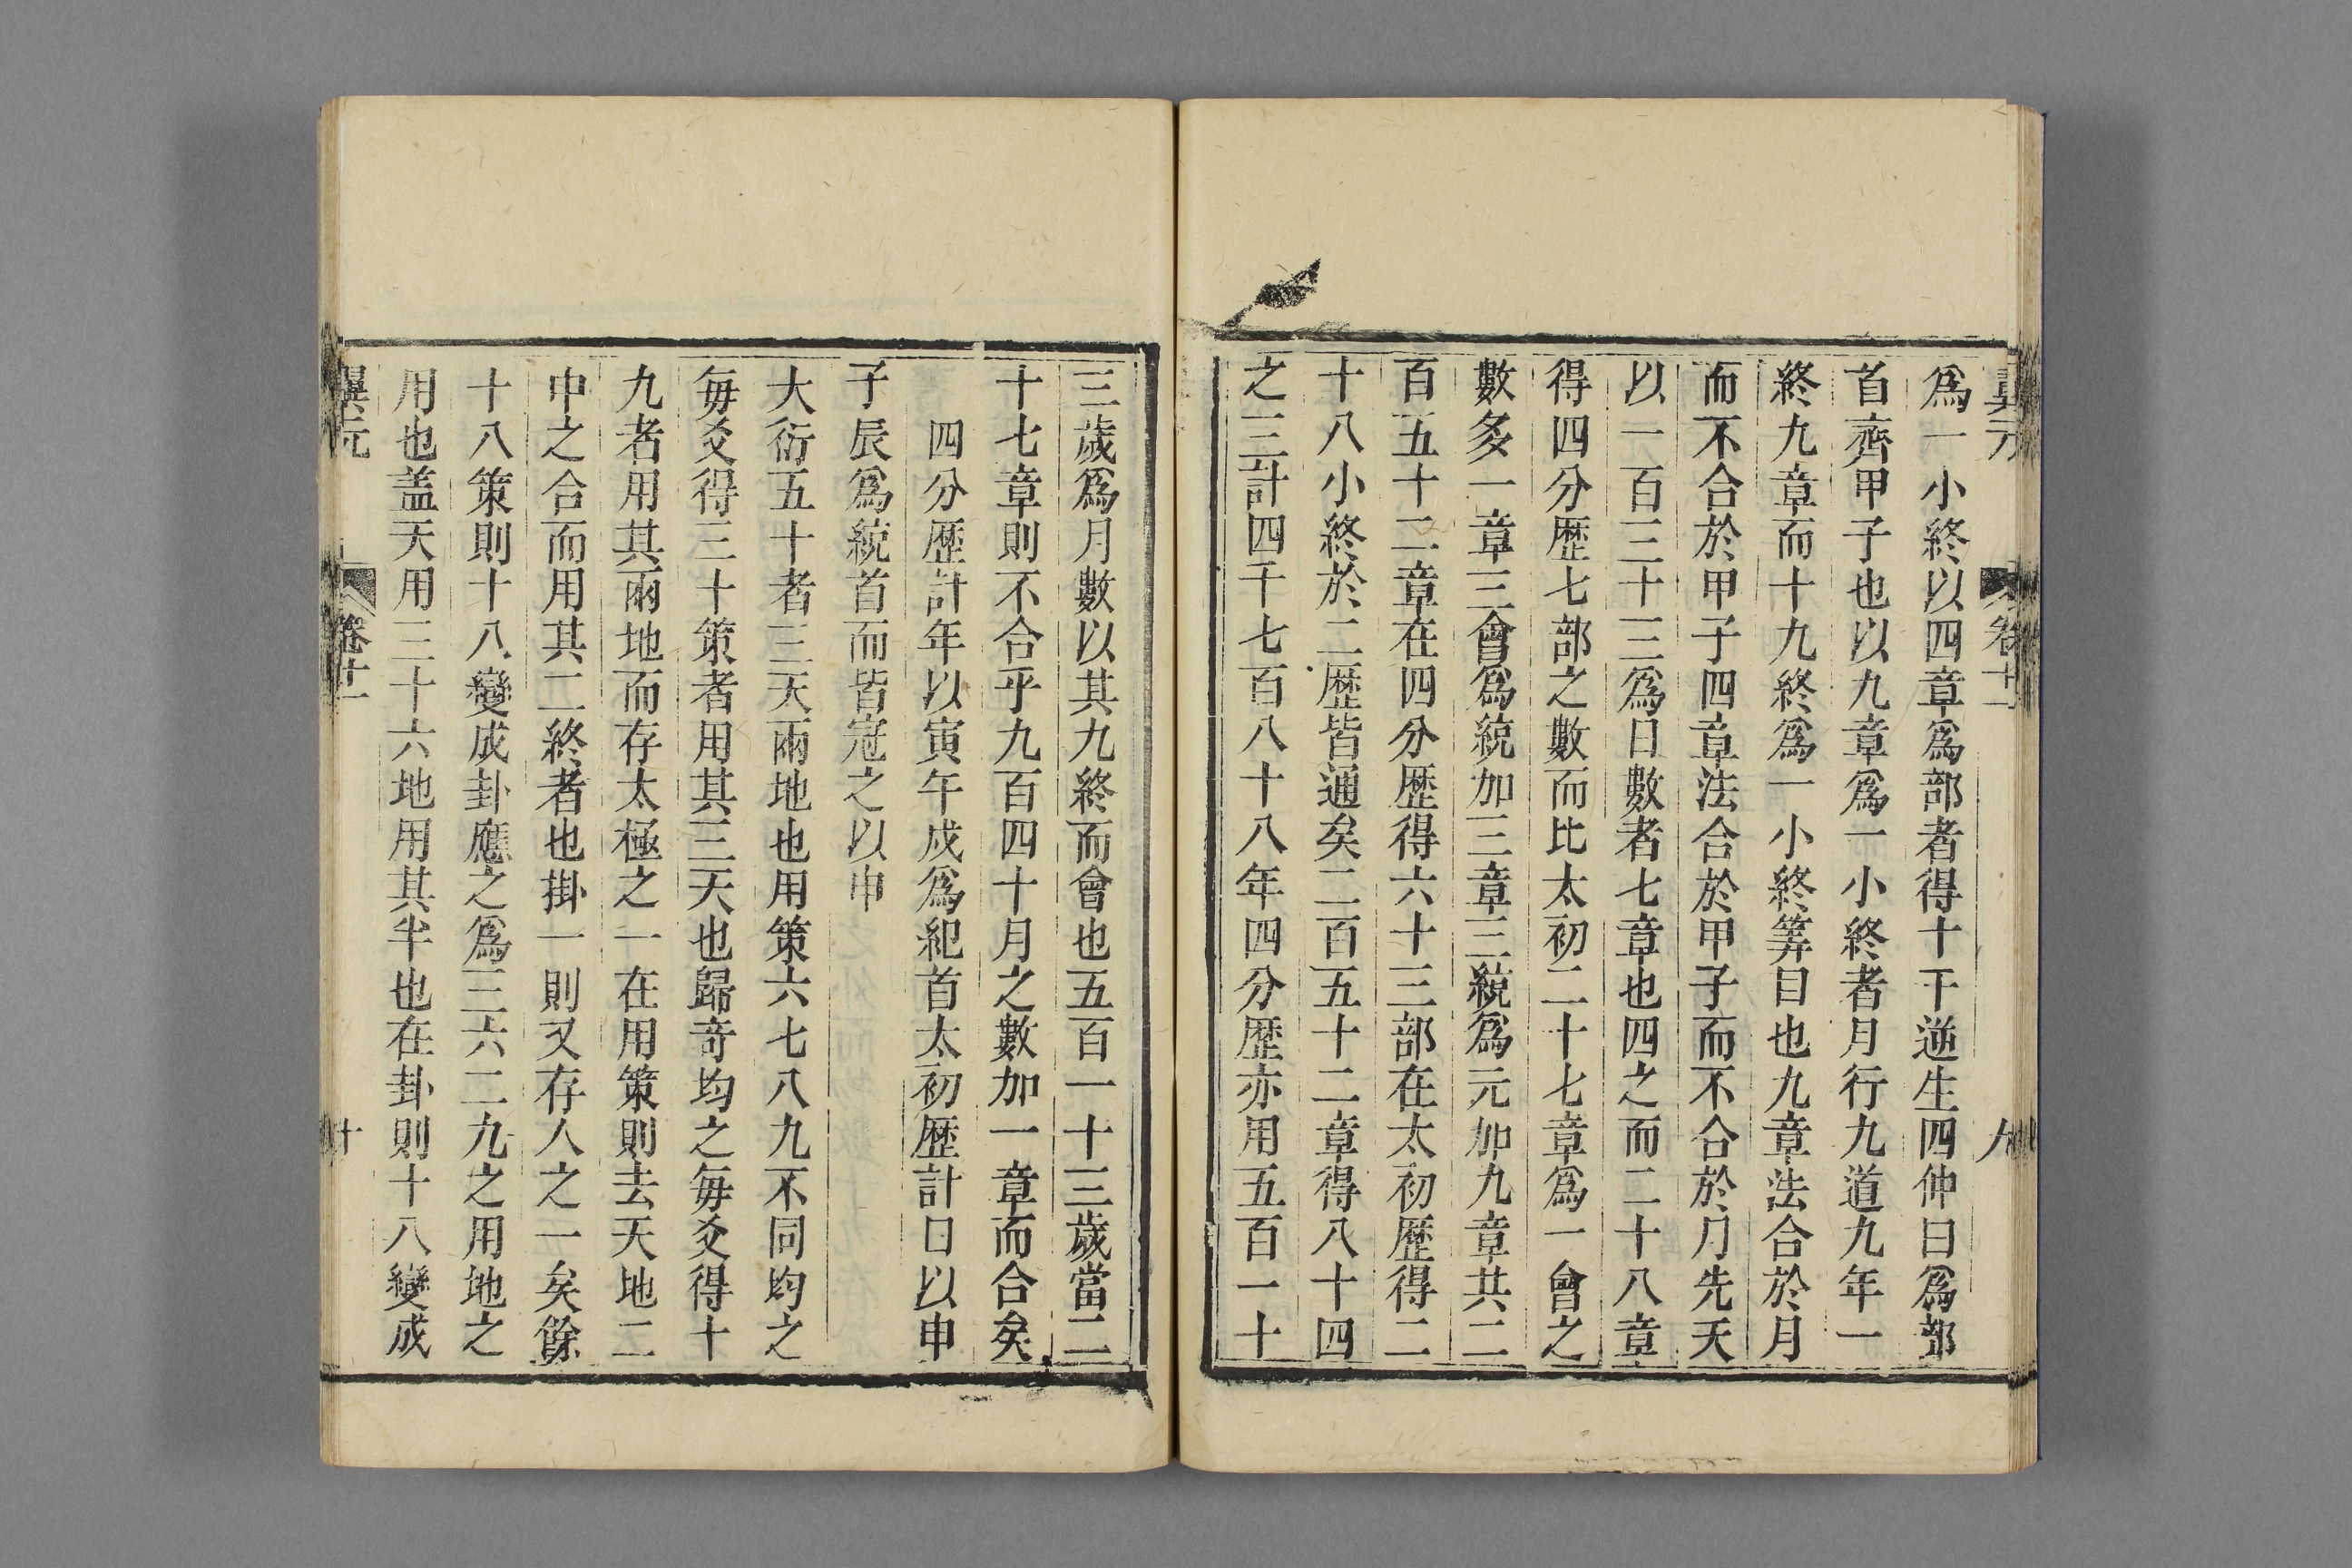 爲一小終以四章爲部者得十干干逆生四仲曰爲部
首齊甲子也以九章爲一小終者月行九道九年一
終九章而十九終爲一小終筭日也九章法合於月
而不合於甲子四章法合於甲子而不合於月先天
以一百三十三爲日數者七章也四之而二十八章
得四分歴七部之數而比太初二十七章爲一會之
數多一章三會爲統加三章三統爲元加九章共二
百五十二章在四分歴得六十三部在太初歴得二
十八小終於二歴皆通矣二百五十二章得八十四
之三計四千七百八十八年四分歴亦用五百一十
三歲爲月數以其九終而會也五百一十三歲當二
十七章則不合乎九百四十月之數加一章而合矣
四分歴計年以寅午戍爲紀首太初歴計日以申
子辰爲統首而皆冠之以申
大衍五十者三天兩地也用策六七八九不同均之
毎爻得三十策者用其三天也歸奇均之毎爻得十
九者用其兩地而存太極之一在用策則去天地二
中之合而用其二終者也掛一則又存人之一矣餘
十八策則十八變成卦應之爲三六二九之用地之
用也盖天用三十六地用其半也在卦則十八變成
卷十一
十